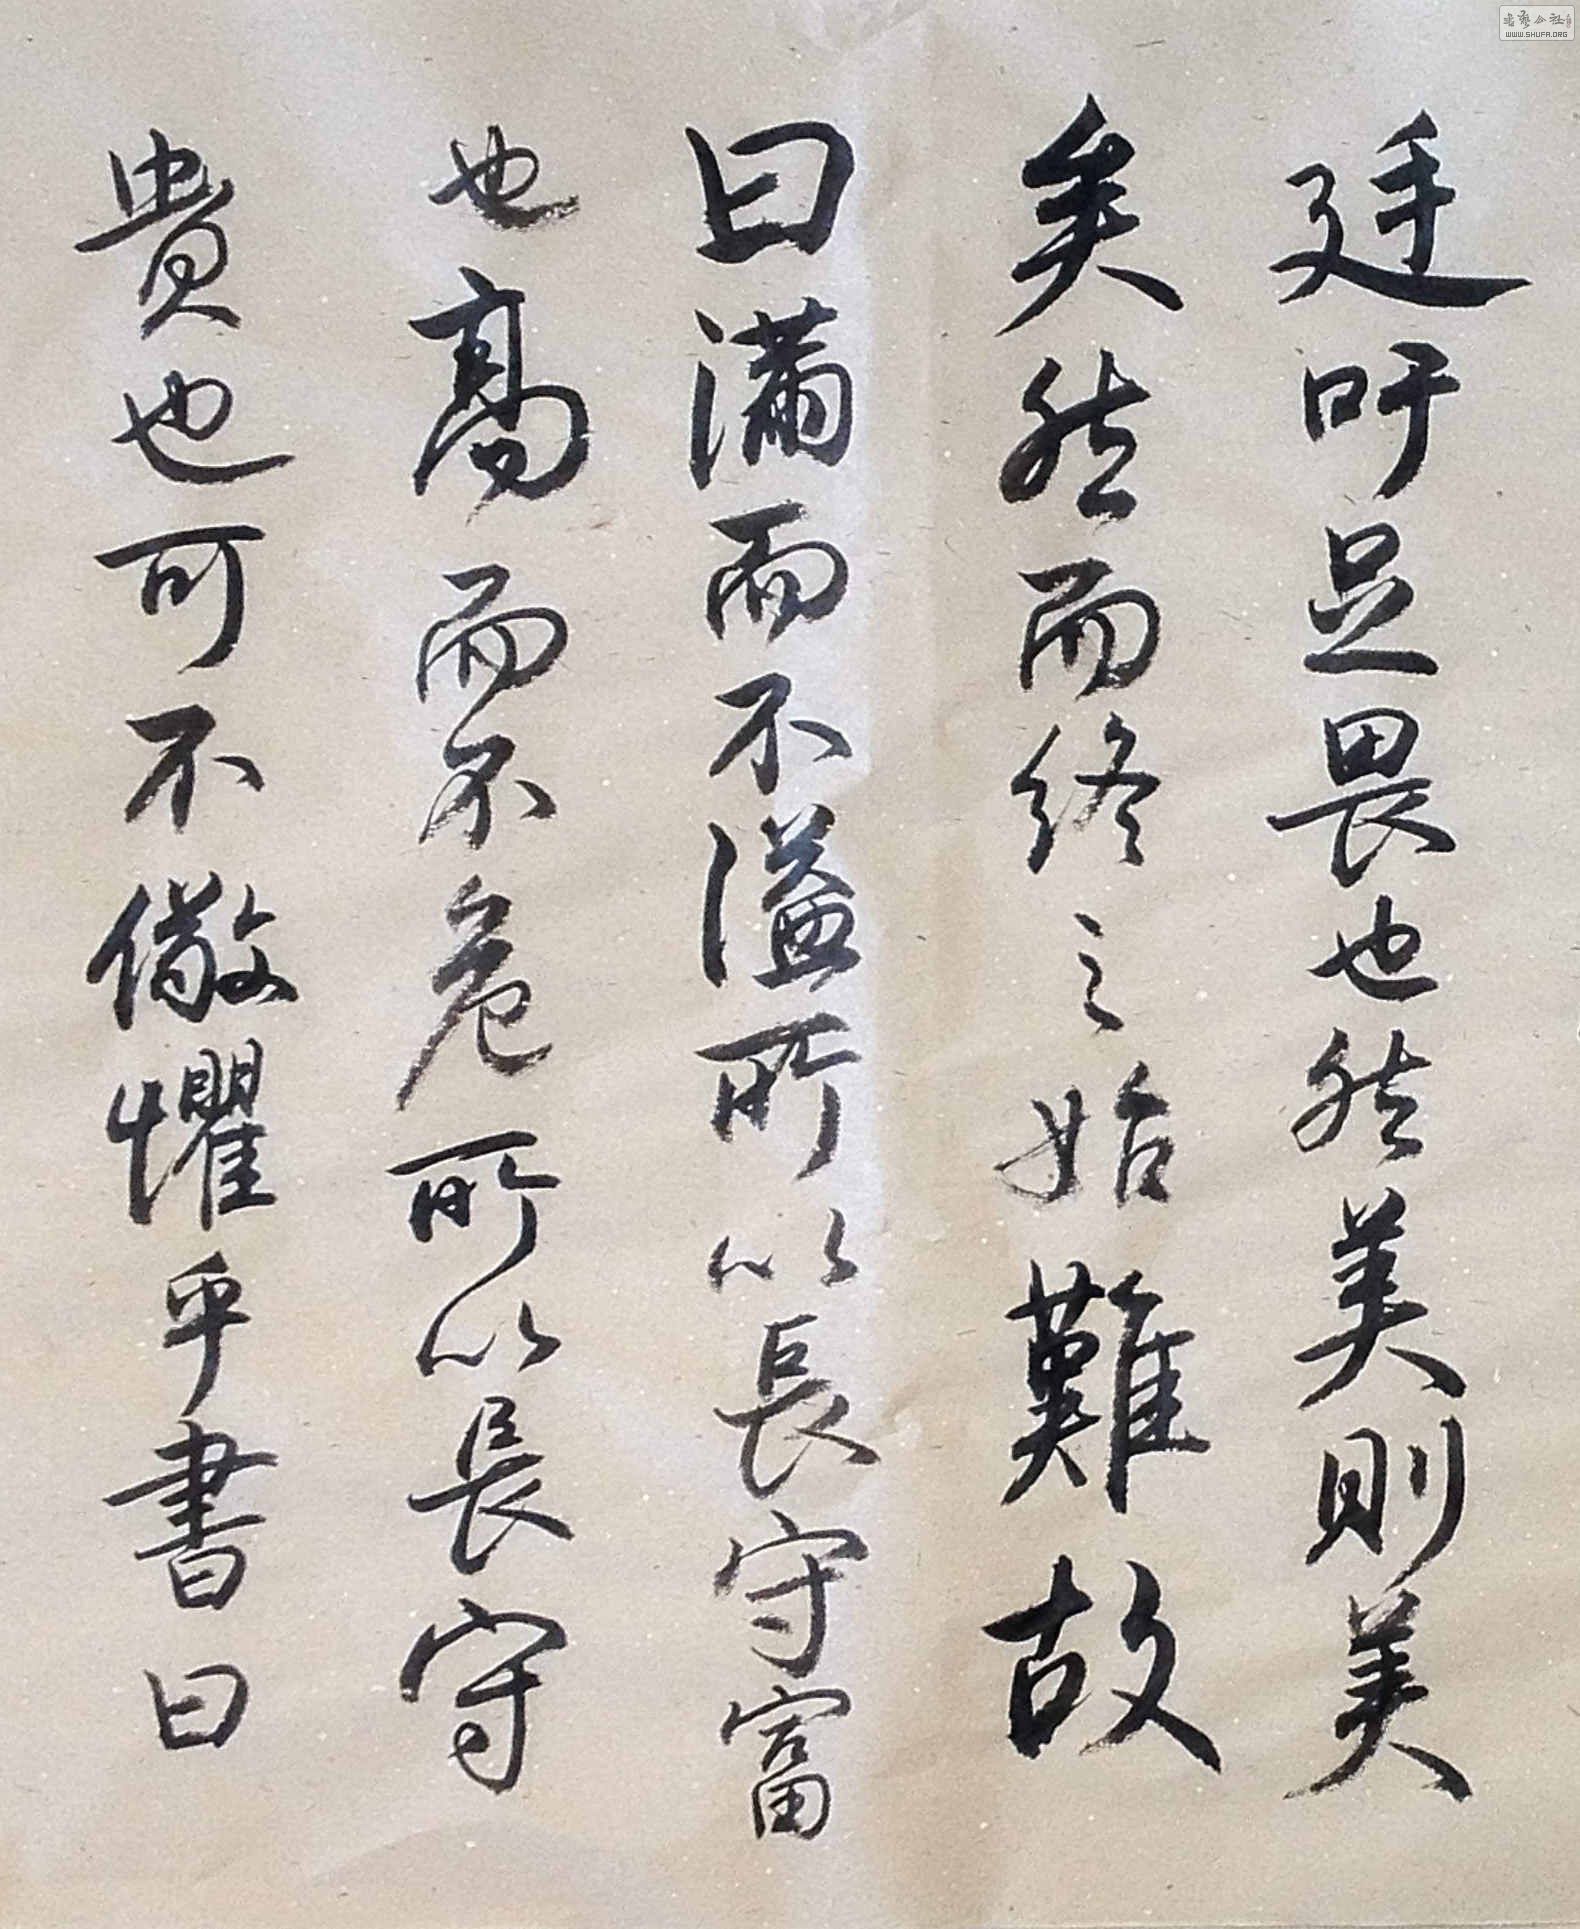 廷吁足畏也然美則美
矣然而終之始難故
曰滿而不溢所以長守富
也高而不危所以長守
貴也可不儆懼乎書曰
WWW.SHUFA.ORG